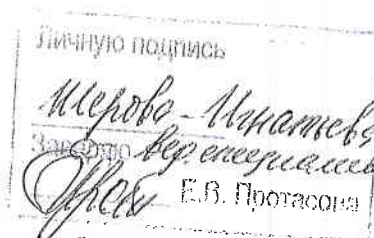 Личную подпись
Шерова-Игнатьева
Заверяю вед. специалист
Е.В. Протасова